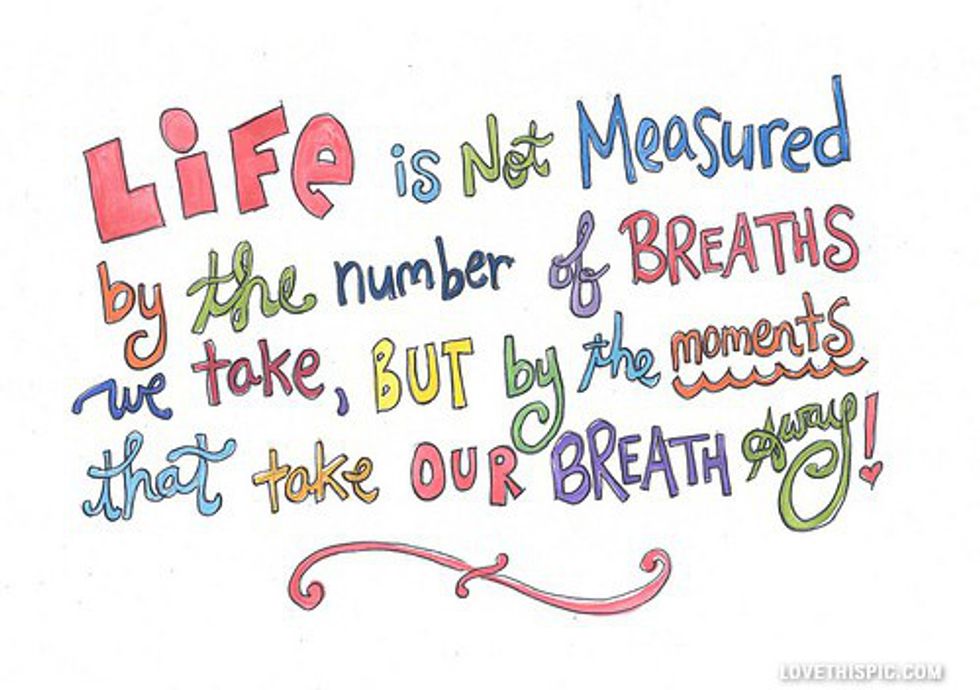 LiFe is Not Measured
by the number of BREATHS
we take, BUT by the moments
that take OUR BREATH Away!
LOVETHISPIC.COM